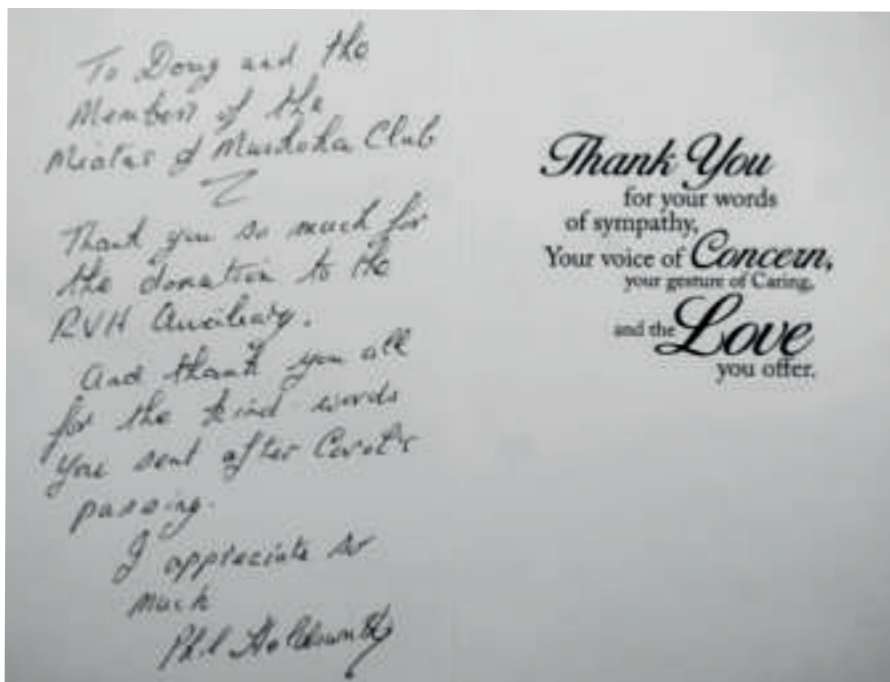 To Doug and the
Members of the
Miatas of Muskoka Club
Thank you so much for
the donation to the
RVH Auxiliary.
And thank you all
for the kind words
you sent after Carol's
passing.
I appreciate so
much
Phil Holdsworth
Thank You
for your words
of sympathy,
Your voice of Concern,
your gesture of Caring,
and the Love
you offer.